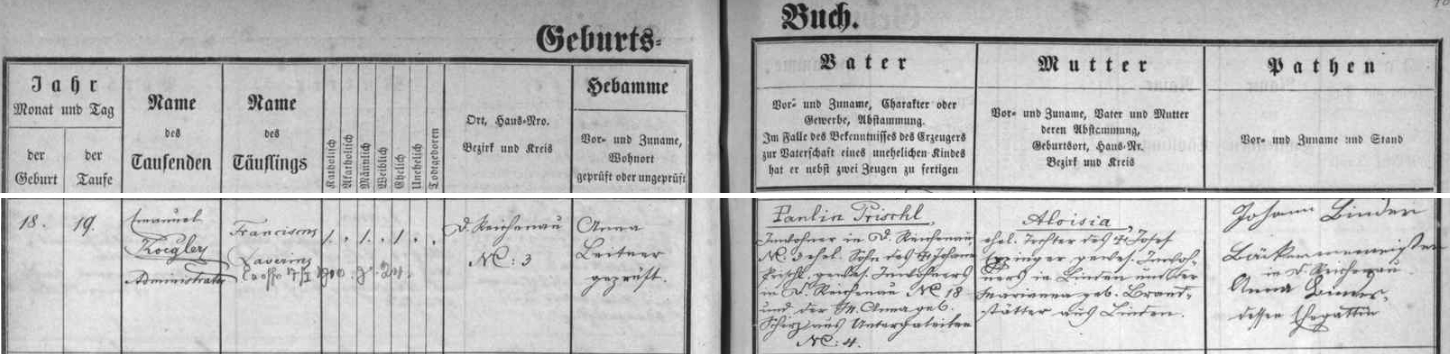 Geburts-
Buch.
Jahr
Monat und Tag
der Geburt
der Taufe
Name
des
Taufenden
Name
des
Täuflings
Katholisch
Akatholisch
Männlich
Weiblich
Ehelich
Unehelich
Todtgeboren
Ort, Haus-Nro.
Bezirk und Kreis
Hebamme
Vor- und Zuname,
Wohnort
geprüft oder ungeprüft
Vater
Vor- und Zuname, Charakter oder
Gewerbe, Abstammung.
Im Falle des Bekenntnisses des Erzeugers
zur Vaterschaft eines unehelichen Kindes
hat er nebst zwei Zeugen zu fertigen
Mutter
Vor- und Zuname, Vater und Mutter
deren Abstammung,
Geburtsort, Haus-Nr.
Bezirk und Kreis
Pathen
Vor- und Zuname und Stand
18.
19.
Emanuel
Koegler
Administrator
Franciscus
Xaverius
D. Reichenau
No: 3
Anna
Leitner
geprüft.
Paulin Prischl,
Inwohner in D. Reichenau
No. 3 ehel. Sohn des † Johann
Prischl, gewes. Inwohners
in D. Reichenau No 18
und der M. Anna geb.
aus
No: 4.
Aloisia,
ehel. Tochter des † Josef
gewes. Inwoh-
ners in Linden und der
Marianna geb. Brand-
stätter aus Linden.
Johann
Bäckermeister
in D. Reichenau
Anna
dessen Ehegattin